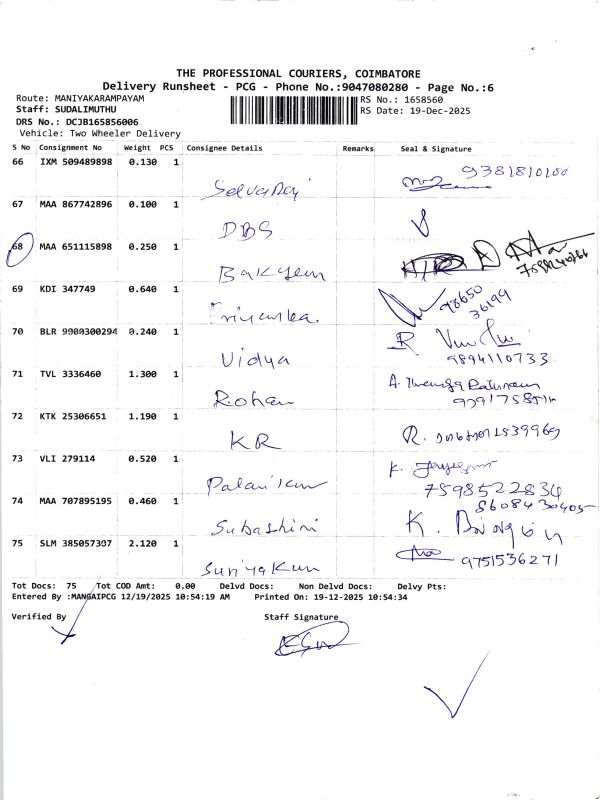 THE PROFESSIONAL COURIERS, COIMBATORE
Delivery Runsheet - PCG - Phone No.:9047080280 - Page No.:6
Route: MANIYAKARAMPAYAM RS No.: 1658560
Staff: SUDALIMUTHU RS Date: 19-Dec-2025
DRS No.: DCJB165856006
Vehicle: Two Wheeler Delivery
S No Consignment No Weight PCS Consignee Details Remarks Seal & Signature
66 IXM 509489898 0.130 1
Selvaraj 9381810100
67 MAA 867742896 0.100 1
DBS
68 MAA 651115898 0.250 1
69 KDI 347749 0.640 1
Priyanka 98650
36194
70 BLR 9900300294 0.240 1
Vidya 9894110733
71 TVL 3336460 1.300 1
Rohan
72 KTK 25306651 1.190 1
KR R.
73 VLI 279114 0.520 1
Palanikum K.
7598522834
74 MAA 707895195 0.460 1 8608430405
Subashini K.
75 SLM 385057307 2.120 1
Suriyakum 9751536271
Tot Docs: 75 Tot COD Amt: 0.00 Delvd Docs: Non Delvd Docs: Delvy Pts:
Entered By :MANGAIPCG 12/19/2025 10:54:19 AM Printed On: 19-12-2025 10:54:34
Verified By Staff Signature